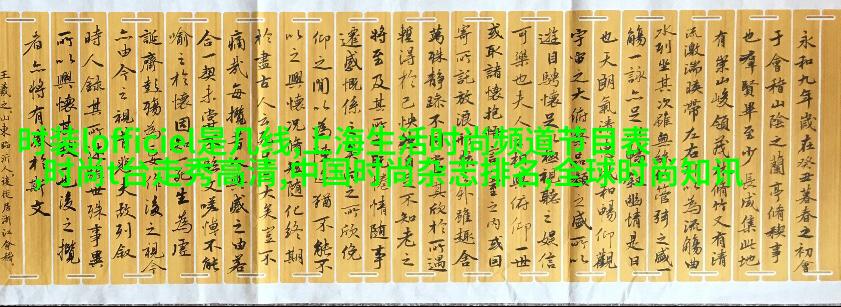 时装lofficiel是几线,上海生活时尚频道节目表
,时尚t台走秀高清,中国时尚杂志排名,全球时尚知讯
永和九年歲在癸丑暮春之初會
于會稽山陰之蘭亭脩稧事
也群賢畢至少長咸集此地
有崇山峻領茂林脩竹又有清
流激湍暎帶左右以為流觴曲
水列坐其次雖無管弦之盛一
觴一詠亦足幽情是日
也天朗氣清和暢仰觀
宇宙之大俯之盛所以
遊目騁懷足視聽之娛信
可樂也夫人俯仰一世
或取諸懷抱之內或因
寄所託放浪外雖趣舍
萬殊靜躁不其欣於所遇
暫得於己快不知老之
將至及其所情随事
遷感慨係之所欣俛
仰之間以為猶不能不
以之興懷況脩随化終期
於盡古人云大矣豈不
痛哉每攬感之由若
合一契未嘗嗟悼不能
喻之於懷固生為虛
誕齊彭殤為後之視今
亦由今之視夫故列敘
時人錄其所世殊事異
所以興懷其後之攬
者亦將有斯文
王羲之山東臨沂人後徙居浙江會稽